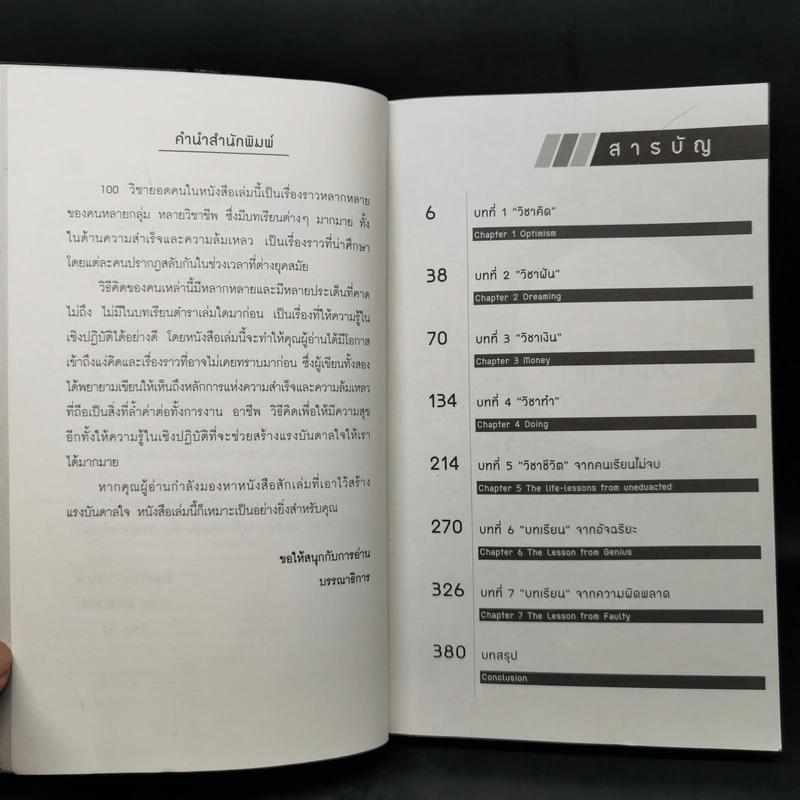 คำนำสำนักพิมพ์
100 วิชายอดคนในหนังสือเล่มนี้เป็นเรื่องราวหลากหลาย
ของคนหลายกลุ่ม หลายวิชาชีพ ซึ่งมีบทเรียนต่างๆ มากมาย ทั้ง
ในด้านความสำเร็จและความล้มเหลว เป็นเรื่องราวที่น่าศึกษา
โดยแต่ละคนปรากฏสลับกันในช่วงเวลาที่ต่างยุคสมัย
วิธีคิดของคนเหล่านี้มีหลากหลายและมีหลายประเด็นที่คาด
ไม่ถึง ไม่มีในบทเรียนตำราเล่มใดมาก่อน เป็นเรื่องที่ให้ความรู้ใน
เชิงปฏิบัติได้อย่างดี โดยหนังสือเล่มนี้จะทำให้คุณผู้อ่านได้มีโอกาส
เข้าถึงแง่คิดและเรื่องราวที่อาจไม่เคยทราบมาก่อน ซึ่งผู้เขียนทั้งสอง
ได้พยายามเขียนให้เห็นถึงหลักการแห่งความสำเร็จและความล้มเหลว
ที่ถือเป็นสิ่งที่ล้ำค่าต่อทั้งการงาน อาชีพ วิธีคิดเพื่อให้มีความสุข
อีกทั้งให้ความรู้ในเชิงปฏิบัติที่จะช่วยสร้างแรงบันดาลใจให้เรา
ได้มากมาย
หากคุณผู้อ่านกำลังมองหาหนังสือสักเล่มที่เอาไว้สร้าง
แรงบันดาลใจ หนังสือเล่มนี้ก็เหมาะเป็นอย่างยิ่งสำหรับคุณ
ขอให้สนุกกับการอ่าน
บรรณาธิการ
สารบัญ
6 บทที่ 1 "วิชาคิด"
Chapter 1 Optimism
38 บทที่ 2 "วิชาฝัน"
Chapter 2 Dreaming
70 บทที่ 3 "วิชาเงิน"
Chapter 3 Money
134 บทที่ 4 "วิชาทำ"
Chapter 4 Doing
214 บทที่ 5 "วิชาชีวิต" จากคนเรียนไม่จบ
Chapter 5 The life-lessons from uneduacted
270 บทที่ 6 "บทเรียน" จากอัจฉริยะ
Chapter 6 The Lesson from Genius
326 บทที่ 7 "บทเรียน" จากความผิดพลาด
Chapter 7 The Lesson from Faulty
380 บทสรุป
Conclusion